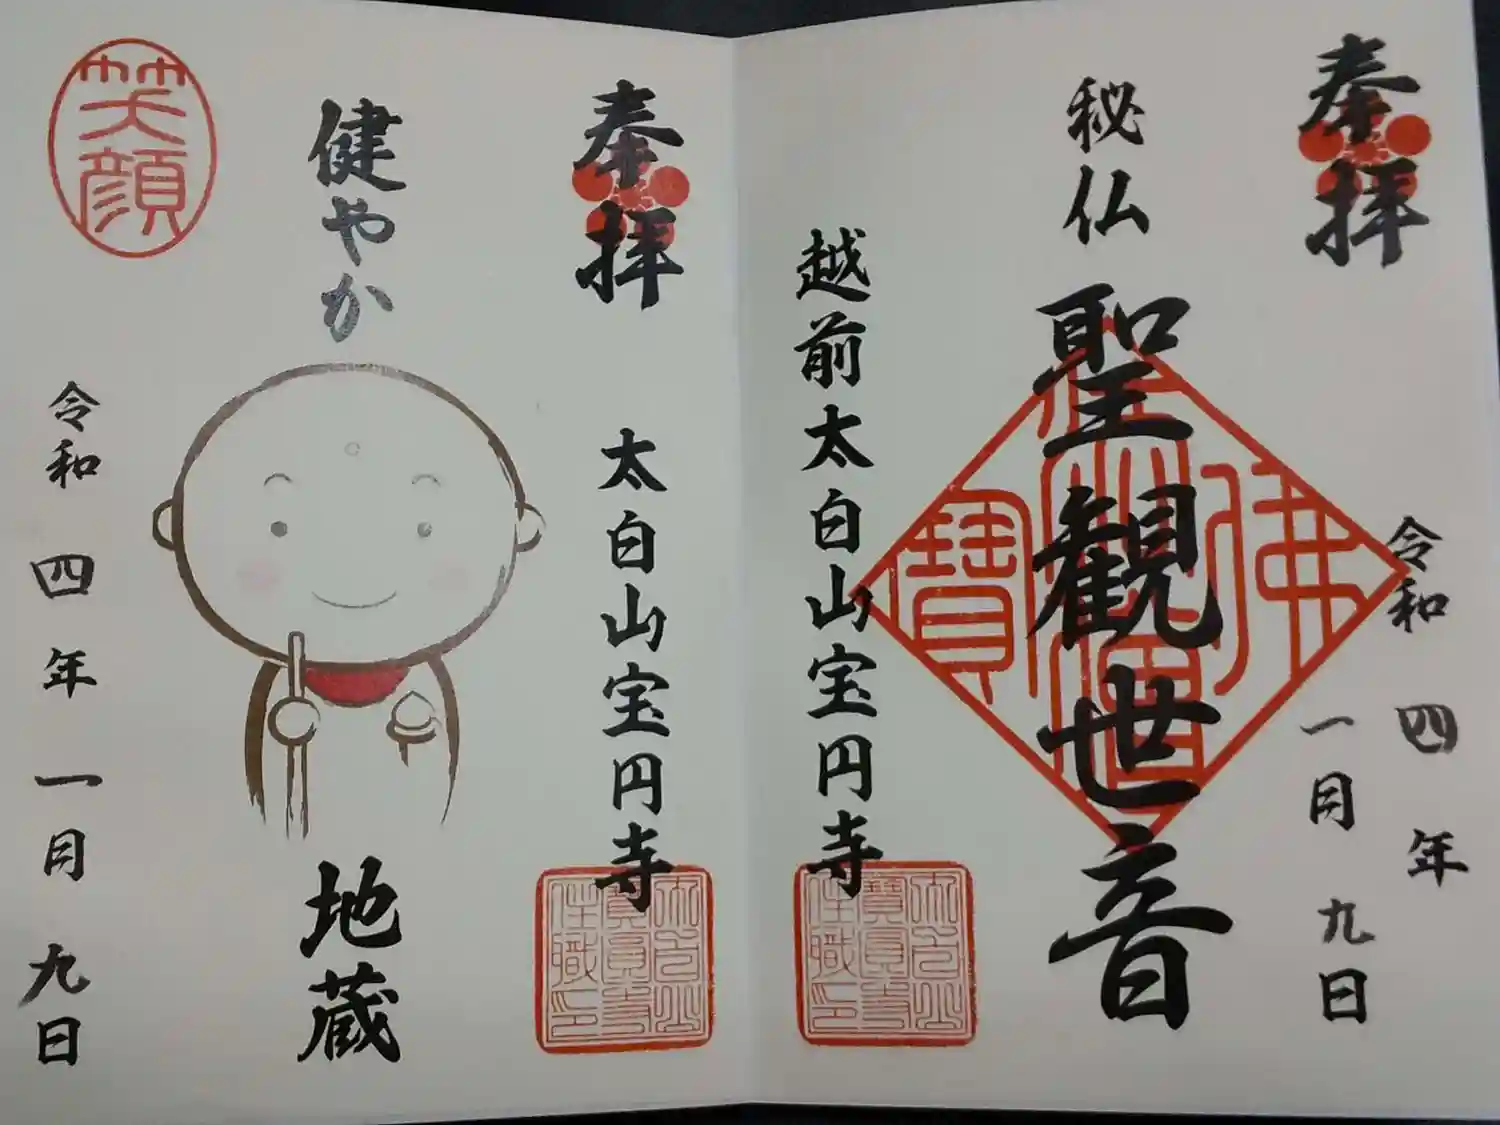 奉拝
令和四年
一月九日
秘仏
聖観世音
佛
寶
越前太白山宝円寺
太白山
寶圓寺
住職印
奉拝
太白山宝円寺
太白山
寶圓寺
住職印
健やか
地蔵
笑顔
令和四年一月九日